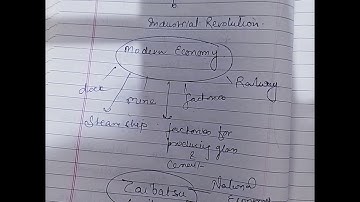 Industrial Revolution.
Modern Economy
Railway
dock
mine
factories
Steam ship
factories for
producing glass
&
Cement
Zaibatsu
National
Economy